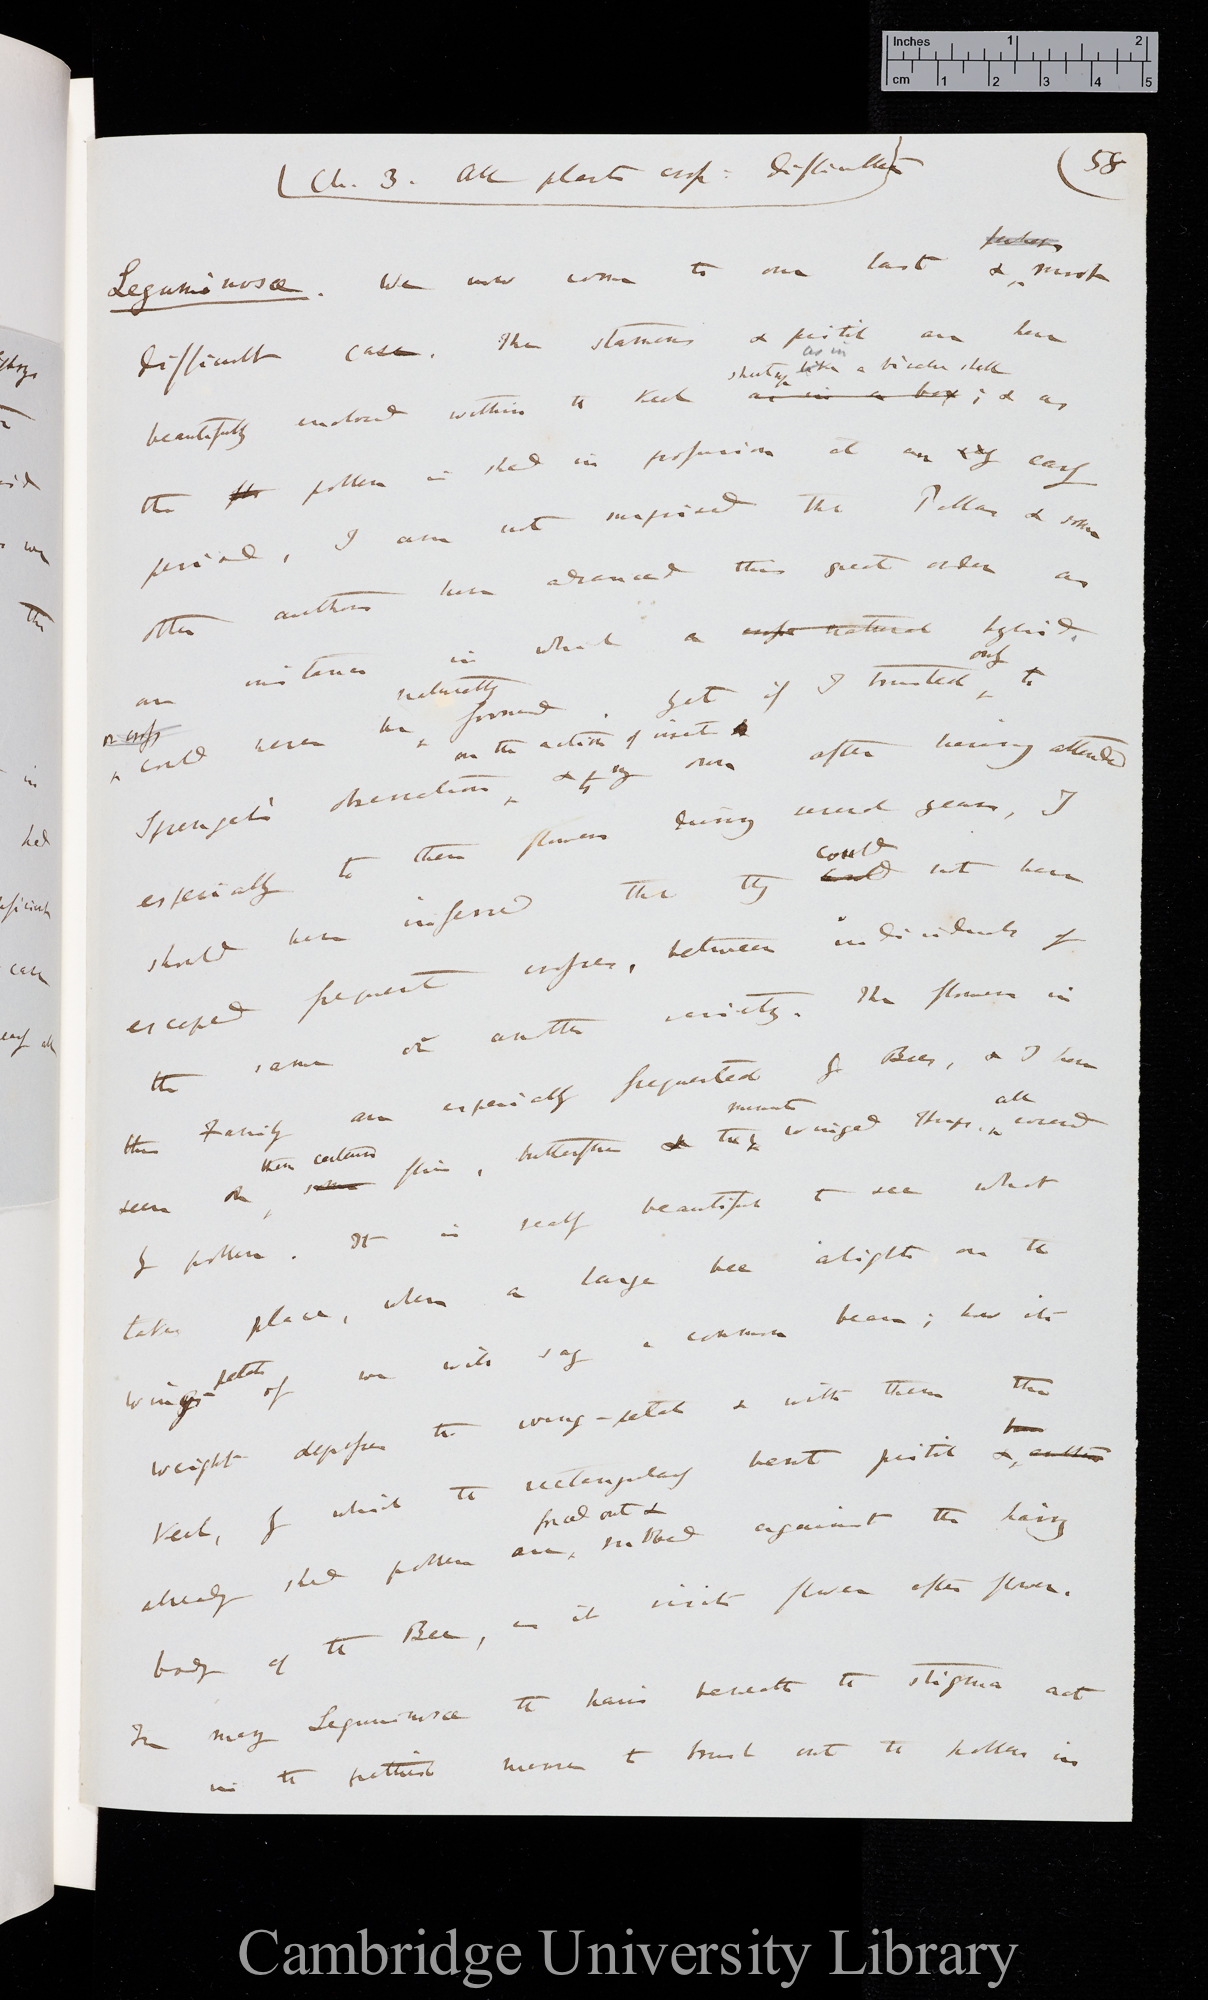 Inches 1 2
cm 1 2 3 4 5
Ch. 3. All plants cross: Difficulties
58
perhaps
Leguminosæ. We now come to our last & most
difficult case. The stamens & pistil are here
as in
shutting like a bivalve shell
beautifully enclosed within the keel as in a box; & as
the pollen is shed in profusion at an early
period, I am not surprised that Pallas & some
other authors have advanced this great order as
an instance in which a natural hybrid,
or cross
naturally
only
could never be formed. Yet if I trusted to
on the action of insects
Sprengel's observations & to my own after having attended
especially to these flowers during several years, I
could
should have inferred that they could not have
escaped frequent crosses, between individuals of
the same or another variety. The flowers in
this Family are especially frequented by Bees, & I have
them certain
minute
all
seen on some flies, butterflies & truly winged Thrips, covered
by pollen. It is really beautiful to see what
takes place, when a large bee alights on the
petals
wings of we will say a common bean; how its
weight depresses the wing-petals & with them the
keel, by which the rectangularly bent pistil & anthers
forced out &
already shed pollen are rubbed against the hairy
body of the Bee, as it visits flower after flower.
In many Leguminosæ the hairs beneath the stigma act
in the prettiest manner to brush out the pollen in
Cambridge University Library